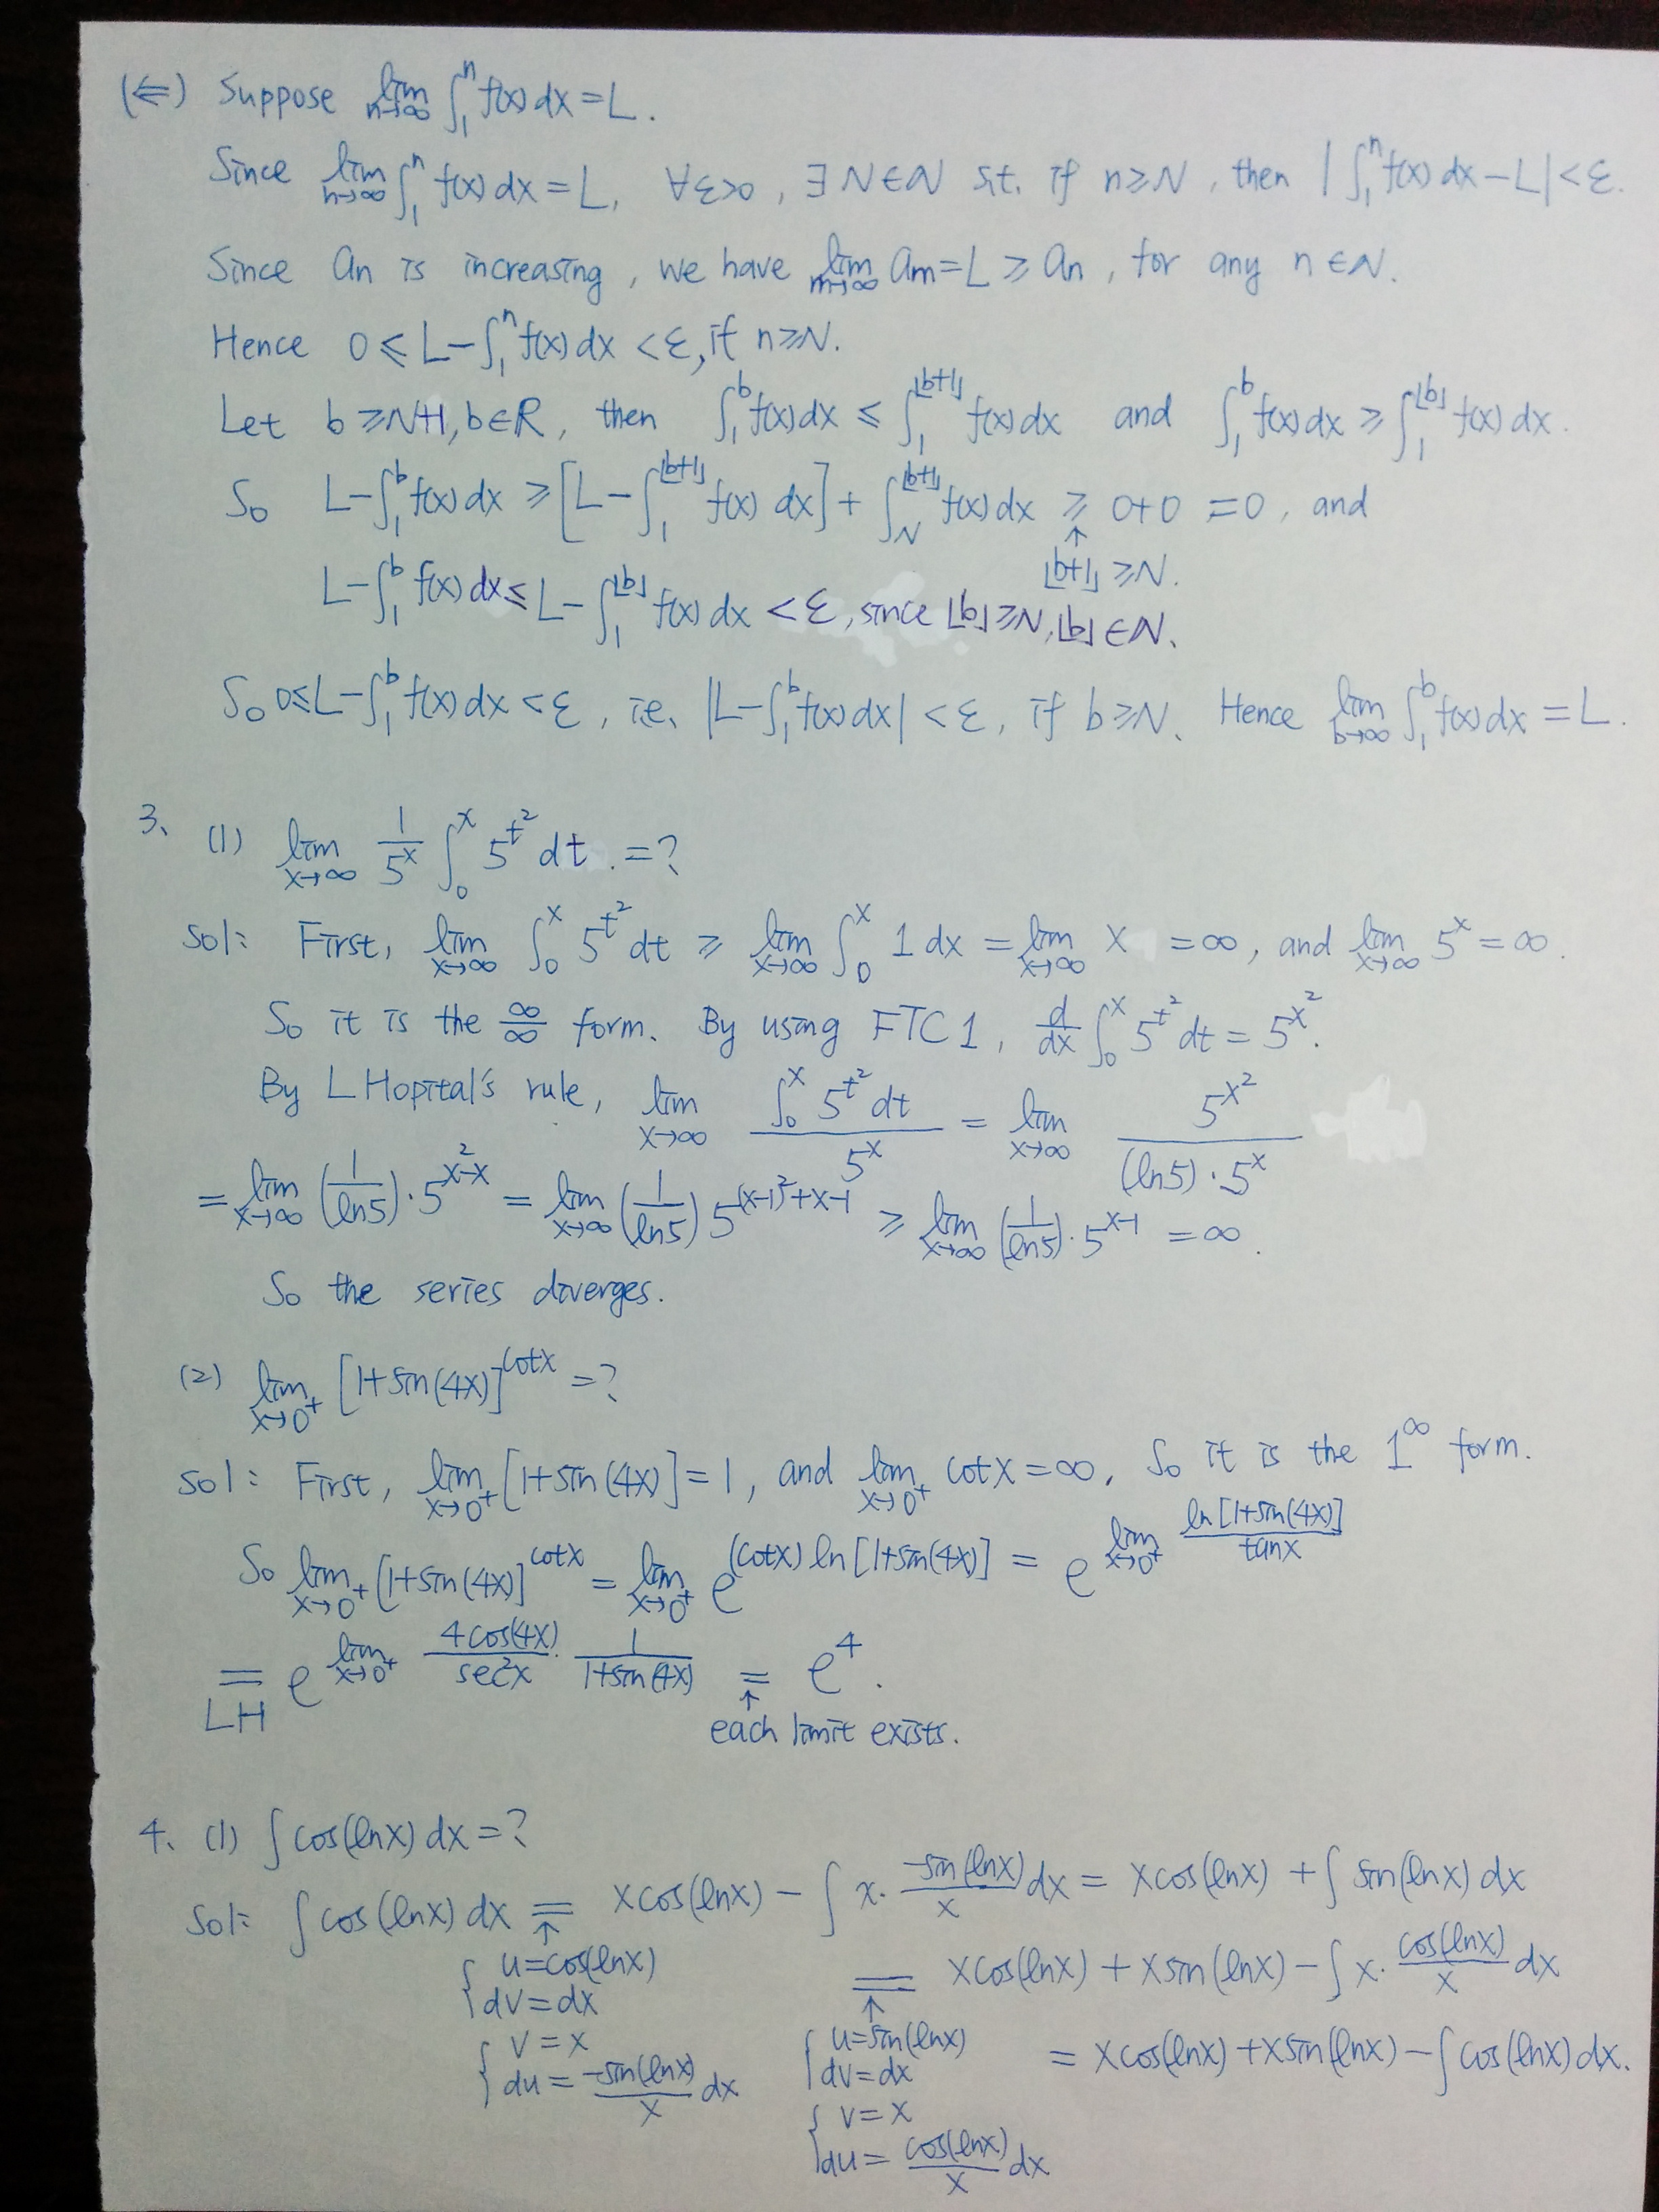 (⇐) Suppose lim_{n→∞} ∫_1^n f(x) dx = L.
Since lim_{n→∞} ∫_1^n f(x) dx = L, ∀ε>0, ∃N∈ℕ s.t. if n≥N, then |∫_1^n f(x) dx − L| < ε.
Since an is increasing, we have lim_{m→∞} am = L ≥ an, for any n∈ℕ.
Hence 0 ≤ L − ∫_1^n f(x) dx < ε, if n≥N.
Let b ≥ N+1, b∈R, then ∫_1^b f(x) dx ≤ ∫_1^{⌊b+1⌋} f(x) dx and ∫_1^b f(x) dx ≥ ∫_1^{⌊b⌋} f(x) dx.
So L − ∫_1^b f(x) dx ≥ [L − ∫_1^{⌊b+1⌋} f(x) dx] + ∫_N^{⌊b+1⌋} f(x) dx ≥ 0+0 = 0, and
↑ ⌊b+1⌋ ≥ N.
L − ∫_1^b f(x) dx ≤ L − ∫_1^{⌊b⌋} f(x) dx < ε, since ⌊b⌋ ≥ N, ⌊b⌋ ∈ ℕ.
So 0 ≤ L − ∫_1^b f(x) dx < ε, i.e. |L − ∫_1^b f(x) dx| < ε, if b ≥ N. Hence lim_{b→∞} ∫_1^b f(x) dx = L.
3. (1) lim_{x→∞} 1/5^x ∫_0^x 5^{t^2} dt. = ?
sol: First, lim_{x→∞} ∫_0^x 5^{t^2} dt ≥ lim_{x→∞} ∫_0^x 1 dx = lim_{x→∞} x = ∞, and lim_{x→∞} 5^x = ∞.
So it is the ∞/∞ form. By using FTC 1, d/dx ∫_0^x 5^{t^2} dt = 5^{x^2}.
By L'Hopital's rule, lim_{x→∞} (∫_0^x 5^{t^2} dt)/(5^x) = lim_{x→∞} 5^{x^2}/((ln5)·5^x)
= lim_{x→∞} (1/ln5)·5^{x^2−x} = lim_{x→∞} (1/ln5) 5^{(x−1)^2+x−1} ≥ lim_{x→∞} (1/ln5)·5^{x−1} = ∞.
So the series diverges.
(2) lim_{x→0^+} [1+sin(4x)]^{cotx} = ?
sol: First, lim_{x→0^+} [1+sin(4x)] = 1, and lim_{x→0^+} cotx = ∞, So it is the 1^∞ form.
So lim_{x→0^+} [1+sin(4x)]^{cotx} = lim_{x→0^+} e^{(cotx) ln[1+sin(4x)]} = e^{lim_{x→0^+} ln[1+sin(4x)]/tanx}
= e^{lim_{x→0^+} 4cos(4x)/sec^2x · 1/(1+sin(4x))} = e^4.
LH ↑ each limit exists.
4. (1) ∫ cos(lnx) dx = ?
sol: ∫ cos(lnx) dx = xcos(lnx) − ∫ x· −sin(lnx)/x dx = xcos(lnx) + ∫ sin(lnx) dx
↑ { u=cos(lnx)
dv=dx
{ v=x
du = −sin(lnx)/x dx
= xcos(lnx) + xsin(lnx) − ∫ x· cos(lnx)/x dx
↑ { u=sin(lnx)
dv=dx
{ v=x
du = cos(lnx)/x dx
= xcos(lnx) + xsin(lnx) − ∫ cos(lnx) dx.